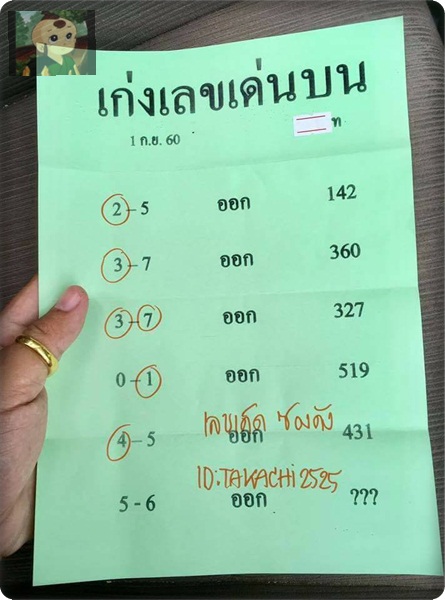 เก่งเลขเด่นบน
1 ก.ย. 60
ท
2-5 ออก 142
3-7 ออก 360
3-7 ออก 327
0-1 ออก 519
เลขเด็ด ซองดัง
4-5 ออก 431
ID:TAKACHI2525
5-6 ออก ???